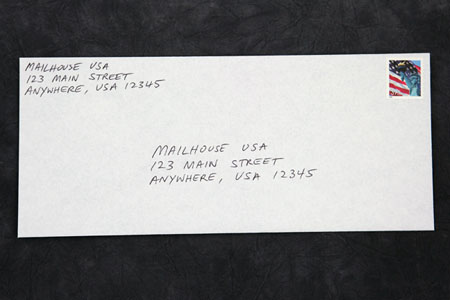 MAILHOUSE USA
123 MAIN STREET
ANYWHERE, USA 12345
MAILHOUSE USA
123 MAIN STREET
ANYWHERE, USA 12345